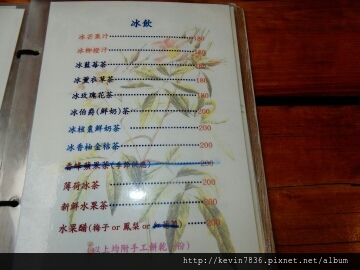 冰飲
冰芒果汁 180
冰柳橙汁 180
冰藍莓茶 180
冰薰衣草茶 180
冰玫瑰花茶 180
冰伯爵(鮮奶)茶 200
冰桂棗鮮奶茶 200
冰香柚金桔茶 200
薄荷冰茶 200
新鮮水果茶 200
水果醋(梅子 or 鳳梨 or 200
以上均附手工餅乾
http://kevin7836.pixnet.net/album